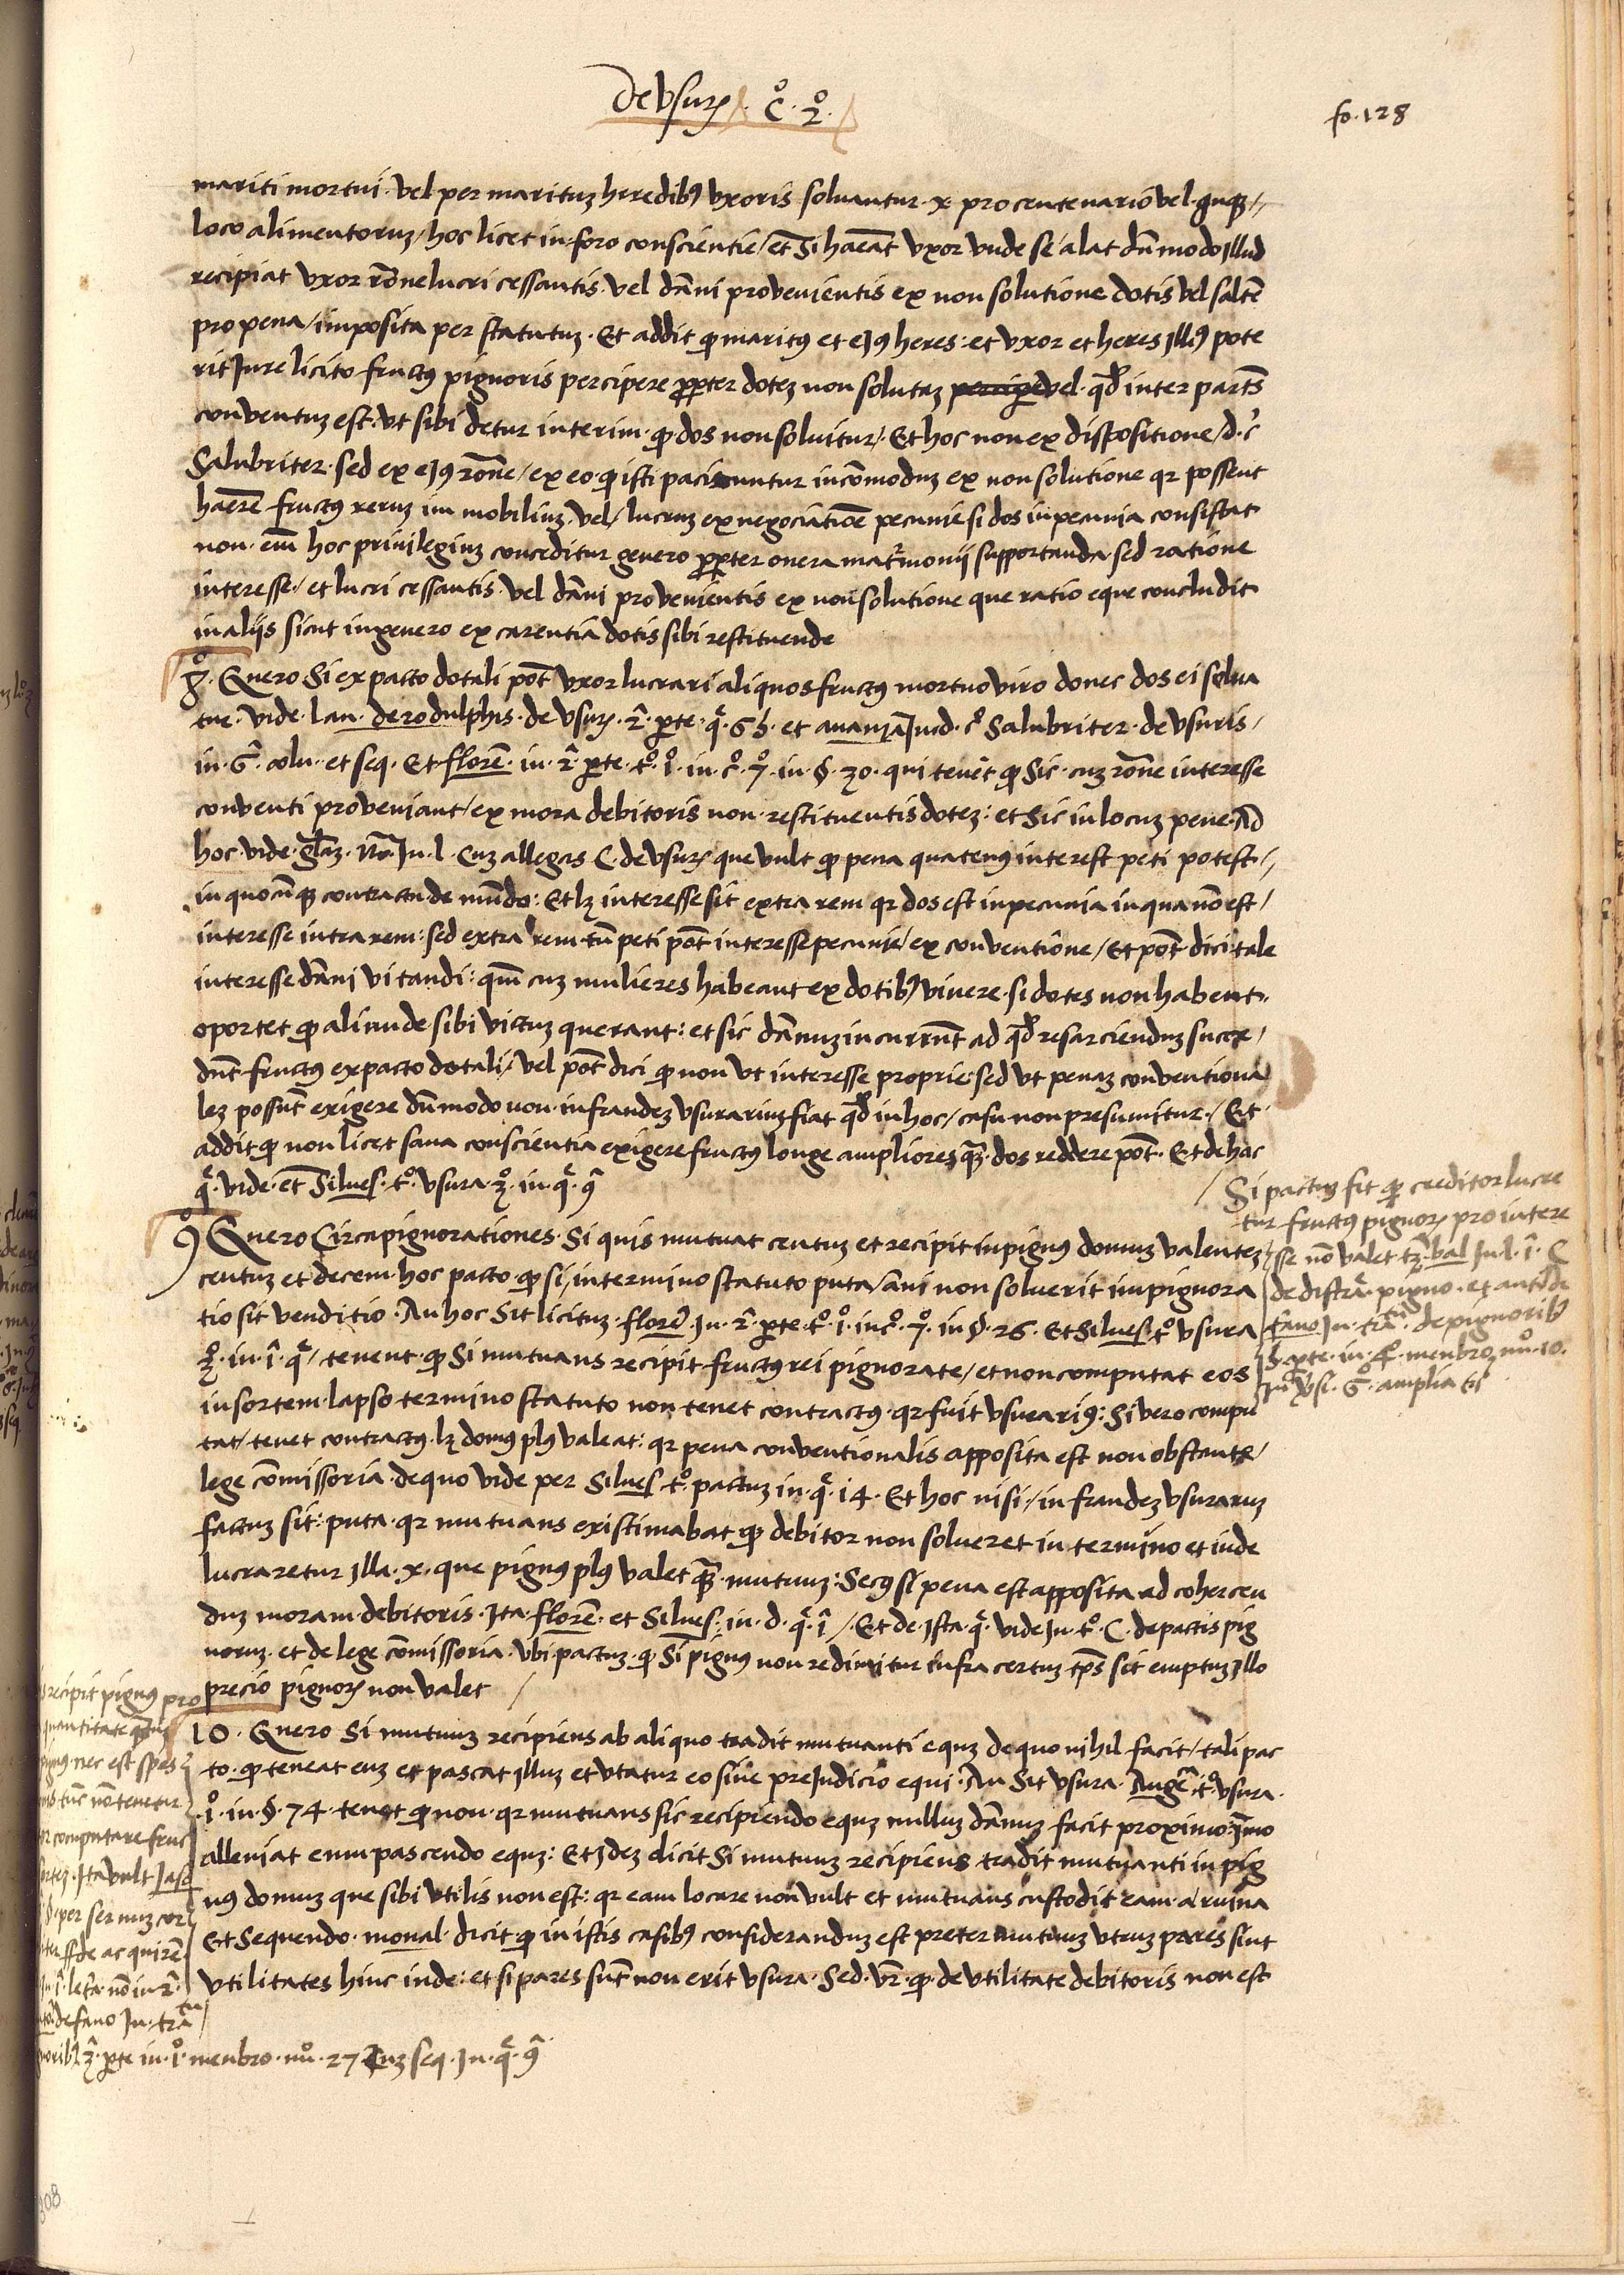 De vsurꝭ. c̊. 2̊.
fo. 128
mariti mortui. vel per marituꝫ heredibꝰ vxoris soluantur. x. pro centenario vel. qnqꝫ //
loco alimentoruꝫ / hoc licet in foro conscientie / et Si haeāt vxor vnde se alat dūmodo Illud
recipiat vxor rōne lucri cessantis. vel dāni provenientis ex non solutione dotis vel saltē
pro pena / imposita per statutuꝫ. Et addit ꝙ maritꝰ et eiꝰ heres: et vxor et heres Illiꝰ pote
rit Iure licito fructꝰ pignoris percipere ꝓpter doteꝫ non solutaꝫ vel. qd̄ inter partes
conventuꝫ est. vt sibi detur interim. ꝙ dos non soluitur / Et hoc non ex dispositione / d. c̊
Salubriter. sed ex eiꝰ rōne / ex eo. ꝙ isti paciuntur incōmoduꝫ ex non solutione qꝛ possent
haere fructꝰ reruꝫ im mobiliuꝫ. vel / lucruꝫ ex negociatiōe pecunie si dos in pecunia consistat
non. em̄ hoc priuilegiuꝫ conceditur genero ꝓpter onera matrimonij supportanda sed ratione
interesse / et lucri cessantis. vel dāni provenientis ex non solutione que ratio eque concludit
in alijs sicut in genero ex carentia dotis sibi restituende
8̊. Quero Si ex pacto dotali pōt vxor lucrari aliquos fructꝰ mortuo viro donec dos ei solua
tur. vide. lau. de rodulphis. de vsurꝭ. 2̂. ꝑte. q̄. 65. et ananiā In d. c̊ Salubriter. de vsuris /
in. 6̂. colu. et seq. Et florē. in. 2̂. ꝑte. t̊. 1̊. in. c̊. 7̊. in. §. 30. qui tenēt ꝙ Sic. cuꝫ rōne interesse
conventi proveniant / ex mora debitoris non restituentis doteꝫ: et Sic in locuꝫ pene. Ad
hoc vide. glaꝫ. nā. In. l. Cuꝫ allegas C. de vsurꝭ que vult ꝙ pena quatenꝰ interest peti potest //
in quocūqꝫ contractu de mūdo: Et lꝫ interesse sit extra rem qꝛ dos est in pecunia in qua nō est /
interesse intra rem: sed extra rem tn̄ peti pōt interesse pecunie / ex conventione / Et pōt dici tale
interesse dāni vitandi: qm̄ cuꝫ mulieres habeant ex dotibꝰ vivere. si dotes non habent.
oportet ꝙ aliunde sibi victuꝫ querant: et sic dānuꝫ incurrūt ad qd̄ resarcienduꝫ succe /
dūt fructꝰ ex pacto dotali / vel pōt dici ꝙ non vt interesse proprie sed vt penaꝫ conventiona
leꝫ possūt exigere dūmodo non. in fraudeꝫ vsurariuꝫ fiat qd̄ in hoc / casu non presumitur. / Et
addit ꝙ non licet sana conscientia exigere fructꝰ longe ampliores qꝫ. dos reddere pōt. Et de hac
q̄. vide. et̄ Silues. t̊. vsura. 3̊. in. q̄. 9̂
9̊ Quero Circa pignorationes. Si quis mutuat centuꝫ et recipit in pignꝰ domuꝫ valenteꝫ /
centuꝫ et decem. hoc pacto. ꝙ si / in termino statuto puta / ani non soluerit impignora
tio sit venditio. An hoc Sit licituꝫ. florē. In. 2̂. ꝑte. t̊. 1̊. in c̊. 7̊. in §. 26. Et Silues. t̊ vsura
3̊. in. 1̂. q̄ / tenent. ꝙ Si mutuans recipit fructꝰ rei pignorate / et non computat eos
in sortem. lapso termino statuto non tenet contractꝰ. qꝛ fuit vsurariꝰ: Si vero compu
tat / tenet contractꝰ. lꝫ domꝰ plꝰ valeat: qꝛ pena conventionalis apposita est non obstante /
lege cōmissoria. de quo vide per Silues. t̊. pactuꝫ in. q̄. 14. Et hoc nisi / in fraudeꝫ vsuraruꝫ
factuꝫ sit: puta. qꝛ mutuans existimabat ꝙ debitor non solueret in termino et inde
lucraretur Illa. x. que pignꝰ plꝰ valet qꝫ. mutuuꝫ: Secꝰ si pena est apposita ad cohercen
duꝫ moram. debitoris. Ita. florē. et Silues. in. d. q̄. 1̂ /. Et de. Ista. q̄. vide In. t̊. C. de pactis pig
noruꝫ. et de lege cōmissoria. vbi. pactuꝫ. ꝙ Si pignꝰ non redimitur infra certuꝫ tp̄s sit emptuꝫ Illo
precio pignorꝭ non valet /
10. Quero Si mutuuꝫ recipiens ab aliquo tradit mutuanti equꝫ de quo nihil facit / tali pac
to. ꝙ teneat euꝫ et pascat Illuꝫ et vtatur eo sine preIudicio equi. An Sit vsura. Angē. t̊. vsura.
1̊. in. §. 74. tenet ꝙ non. qꝛ mutuans sic recipiendo equꝫ nulluꝫ dānuꝫ facit proximo: Imo
alleuiat eum pascendo equꝫ: Et Ideꝫ dicit Si mutuuꝫ recipiens tradit mutuanti in pig
nꝰ domuꝫ que sibi vtilis non est: qꝛ eam locare non vult et mutuans custodit eam. a ruina
Et Sequendo. monal. dicit ꝙ in istis casibꝰ consideranduꝫ est preter mutuuꝫ vtruꝫ pares sint
vtilitates hinc inde: et si pares sūt non erit vsura. Sed. vr̄. ꝙ. de vtilitate debitoris non est
/ Si pactuꝫ sit ꝙ creditor lucre
tur fructꝰ pignorꝭ pro intere
sse nō valet tꝫ. bal In. l. 1̂. C
de distrā. pigno. et antō de
fano In. trā. de pignoribꝰ
5. ꝑte. in. 4̊. menbro nu̅. 10.
In versi. 6̊. ampliatis
recipit pignꝰ pro
quantitate
nec est spes
tūc nō tenetur
computare fruc
Ita vult Iaso
per
ff de acquirē.
nō in. 2̂
de fano In. trā tu
3̂. ꝑte in. 1̊. menbro. nu̅. 27 Cuꝫ seq. In. q̄. 9̂
308